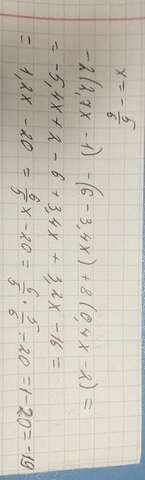 x = - 5/6
-2(2,7x - 1) - (6 - 3,4x) + 8(0,4x - 2) =
= -5,4x + 2 - 6 + 3,4x + 3,2x - 16 =
= 1,2x - 20 = 6/5 x - 20 = 6/5 · 5/6 - 20 = 1 - 20 = -19